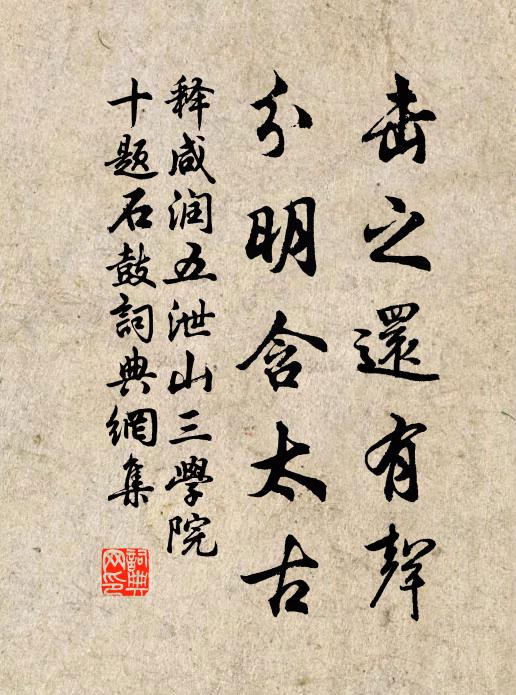 击之還有聲
分明含太古
释咸润五泄山三學院
十题石鼓詞典網集
詞典網印